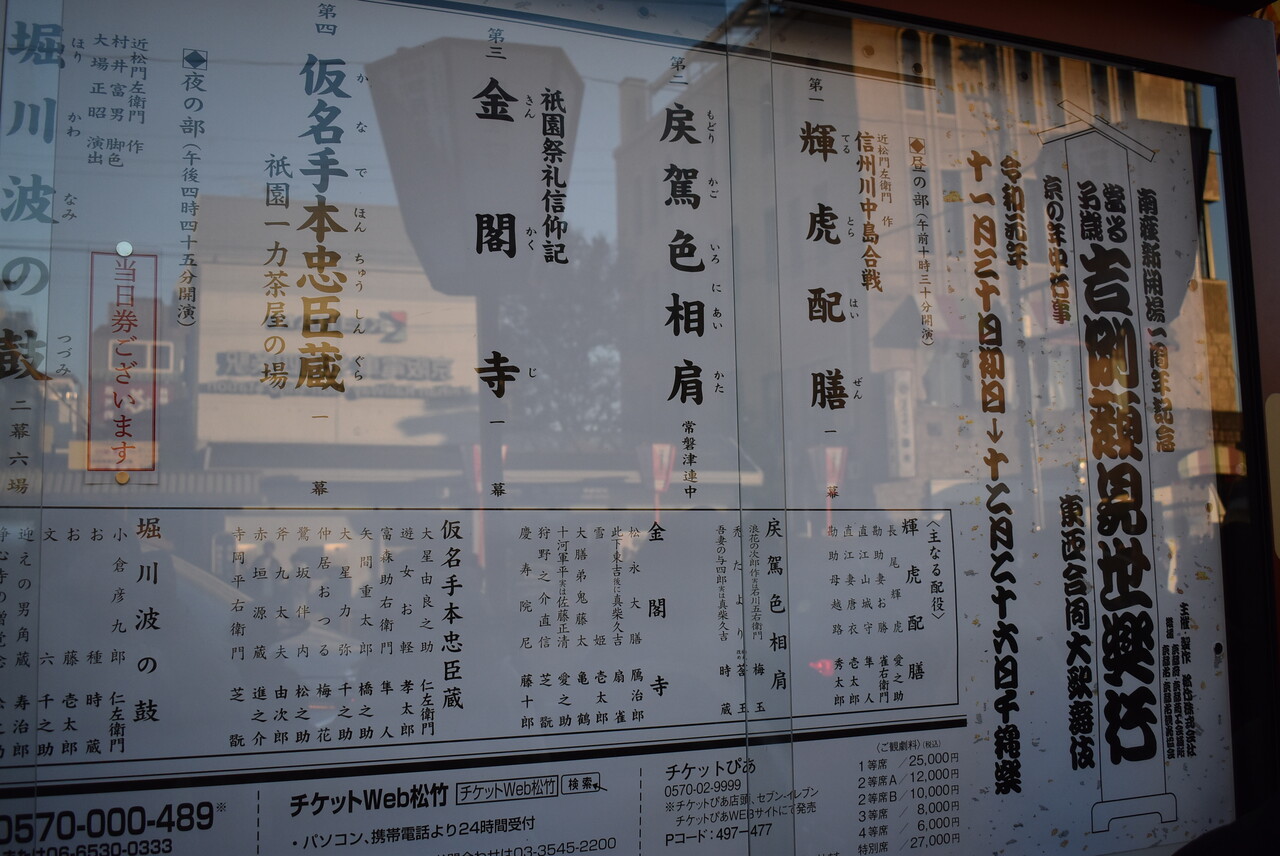 南座新開場一周年記念
當る子歳 吉例顔見世興行
京の年中行事
東西合同大歌舞伎
令和元年
十一月三十日初日→十二月二十六日千穐楽
◆昼の部（午前十時三十分開演）
近松門左衛門 作
信州川中島合戦
第一 輝虎配膳 一幕
てる とら はい ぜん
第二 戻駕色相肩 常磐津連中
もどり かご いろ に あい かた
祇園祭礼信仰記
第三 金閣寺 一幕
きん かく じ
第四 仮名手本忠臣蔵 一幕
か な で ほん ちゅう しん ぐら
祇園一力茶屋の場
◆夜の部（午後四時四十五分開演）
近松門左衛門 作
村井富男 脚色
大場正昭 演出
堀川波の鼓 二幕六場
ほり かわ なみ つづみ
当日券ございます
〈主なる配役〉
輝虎配膳
長尾輝虎 愛之助
勘助妻お勝 雀右衛門
直江山城守 隼人
直江妻唐衣 壱太郎
勘助母越路 秀太郎
戻駕色相肩
浪花の次郎作実は石川五右衛門 梅玉
禿たより 莟玉
吾妻の与四郎実は真柴久吉 時蔵
金閣寺
松永大膳 鴈治郎
此下東吉後に真柴久吉 扇雀
雪姫 壱太郎
大膳弟鬼藤太 亀鶴
十河軍平実は佐藤正清 愛之助
狩野之介直信 芝翫
慶寿院尼 藤十郎
仮名手本忠臣蔵
大星由良之助 仁左衛門
遊女お軽 孝太郎
富森助右衛門 隼人
矢間重太郎 橋之助
大星力弥 千之助
仲居おつる 梅花
鷺坂伴内 松之助
斧九太夫 由次郎
赤垣源蔵 進之介
寺岡平右衛門 芝翫
堀川波の鼓
小倉彦九郎 仁左衛門
お種 時蔵
お藤 壱太郎
文六 千之助
迎えの男角蔵 寿治郎
〈ご観劇料〉（税込）
1等席／25,000円
2等席A／12,000円
2等席B／10,000円
3等席／8,000円
4等席／6,000円
特別席／27,000円
チケットぴあ
0570-02-9999
※チケットぴあ店頭、セブン-イレブン
チケットぴあWEBサイトにて発売
Pコード：497-477
チケットWeb松竹 チケットWeb松竹 検索
・パソコン、携帯電話より24時間受付
03-3545-2200
0570-000-489※
06-6530-0333